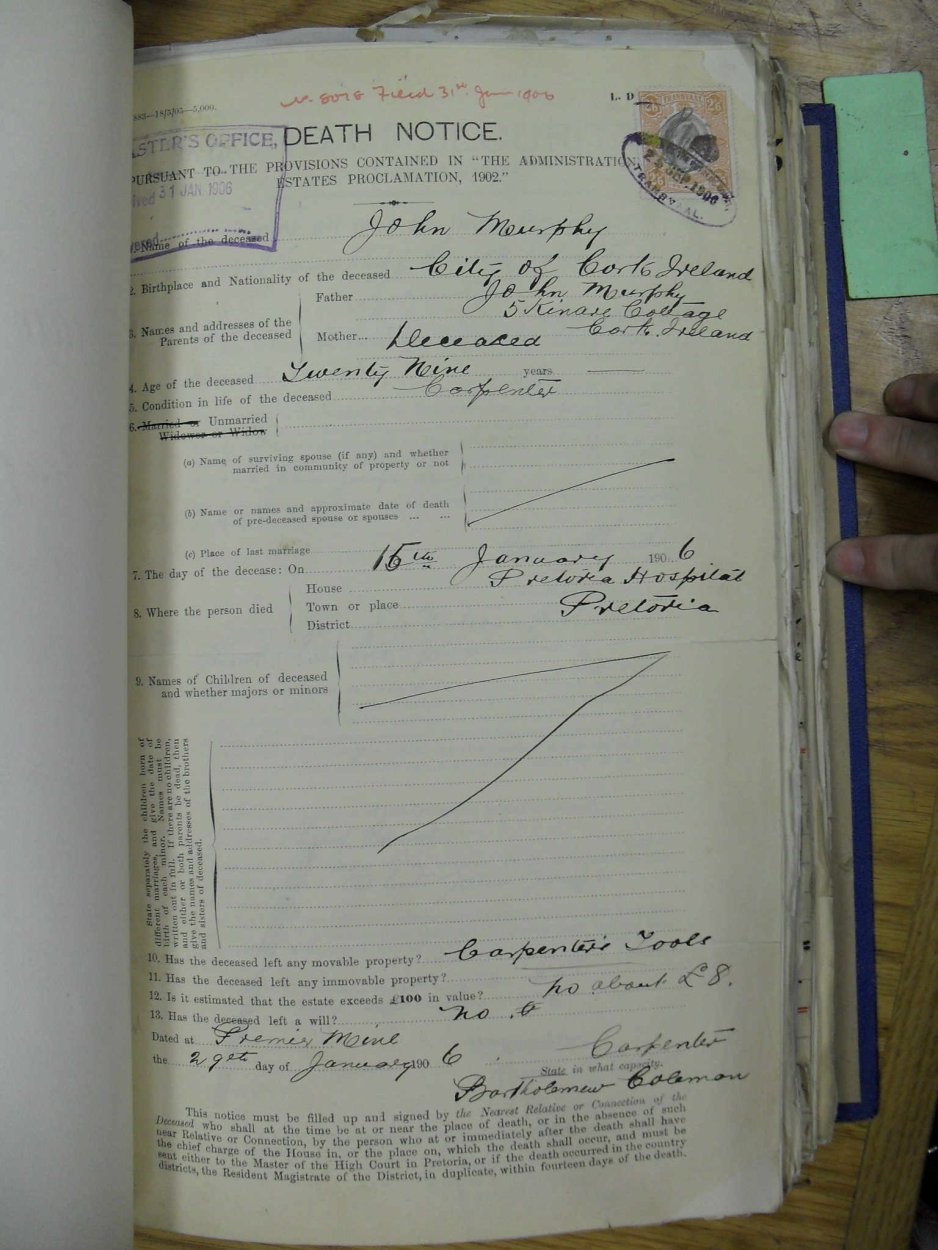 883—18/5/05—5,000.
8018 Filed 31st Jan 1906
L. D
TRANSVAAL
MASTER'S OFFICE,
DEATH NOTICE.
PURSUANT TO THE PROVISIONS CONTAINED IN "THE ADMINISTRATION
ESTATES PROCLAMATION, 1902."
31 JAN. 1906
JAN. 1906
TRANSVAAL.
Name of the deceased John Murphy
2. Birthplace and Nationality of the deceased City of Cork Ireland
3. Names and addresses of the Parents of the deceased
Father John Murphy
5 Kinare Cottage
Cork. Ireland
Mother... Deceased
4. Age of the deceased Twenty Nine years
5. Condition in life of the deceased Carpenter
6. Married or Unmarried
Widower or Widow
(a) Name of surviving spouse (if any) and whether
married in community of property or not
(b) Name or names and approximate date of death
of pre-deceased spouse or spouses ... ...
(c) Place of last marriage
7. The day of the decease: On 15th January 1906
8. Where the person died
House Pretoria Hospital
Town or place Pretoria
District
9. Names of Children of deceased
and whether majors or minors
State separately the children born of
different marriages, and give the date of
birth of each minor. Names must be
written out in full. If there are no children,
and either or both parents be dead, then
give the names and addresses of the brothers
and sisters of deceased.
10. Has the deceased left any movable property? Carpenter's Tools
11. Has the deceased left any immovable property?
12. Is it estimated that the estate exceeds £100 in value? no about £8.
13. Has the deceased left a will? no
Dated at Premier Mine
the 29th day of January 1906
Carpenter
State in what capacity.
Bartholomew Coleman
This notice must be filled up and signed by the Nearest Relative or Connection of the
Deceased who shall at the time be at or near the place of death, or in the absence of such
near Relative or Connection, by the person who at or immediately after the death shall have
the chief charge of the House in, or the place on, which the death shall occur, and must be
sent either to the Master of the High Court in Pretoria, or if the death occurred in the country
districts, the Resident Magistrate of the District, in duplicate, within fourteen days of the death.